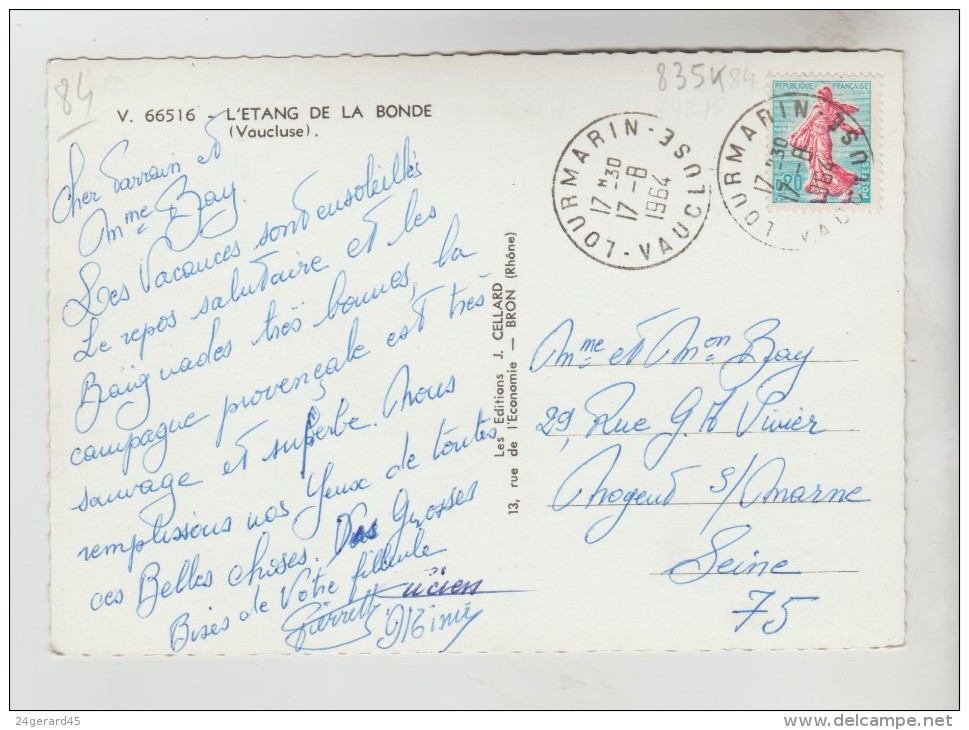 84
V. 66516 - L'ETANG DE LA BONDE
(Vaucluse).
835K 84
Cher Parrain et
Mme Bay.
Les Vacances sont ensoleillés
Le repos salutaire et les
Baignades très bonnes, la
campagne provençale est très
sauvage et superbe. Nous
remplissons nos yeux de toutes
ces Belles choses. Grosses
Bises de Votre filleule
Pierrette Lucien
Mimi
Les Editions J. CELLARD
13, rue de l'Economie — BRON (Rhône)
LOURMARIN - VAUCLUSE
17 H 30
17 - 8
1964
LOURMARIN - VAUCLUSE
17 H 30
17 - 8
1964
REPUBLIQUE FRANÇAISE
0,20
POSTES
Mme et Mon Bay
29, Rue G. H Vivier
Nogent s/Marne
Seine
75
24gerard45
www.delcampe.net